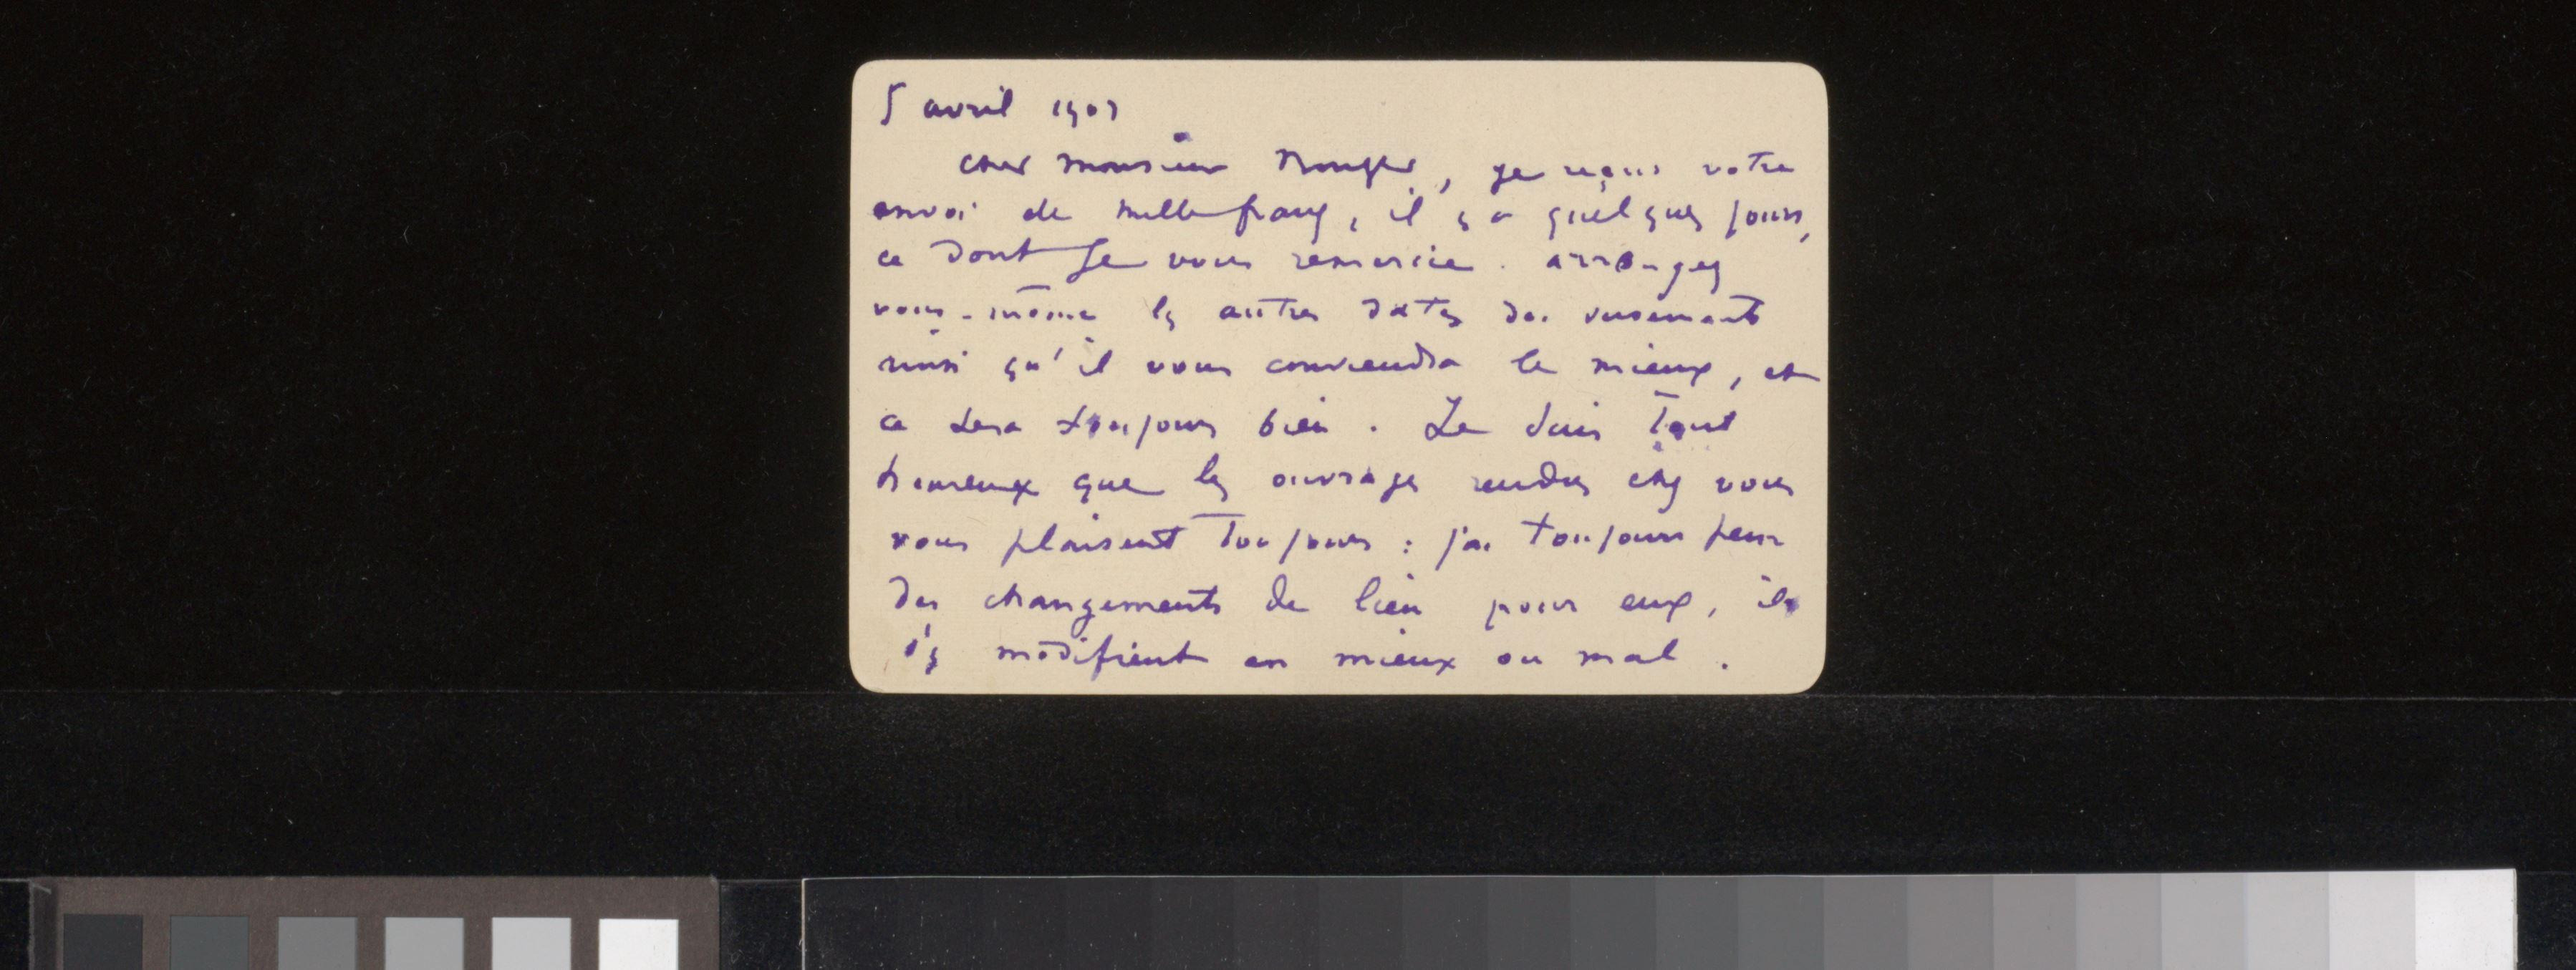 5 avril 1903
cher monsieur, je reçus votre
envoi de mille francs, il y a quelques jours,
ce dont je vous remercie. arrangez
vous-même les autres dates des versements
ainsi qu'il vous conviendra le mieux, et
ce sera toujours bien. Je suis tout
heureux que les ouvrages rendus chez vous
vous plaisent toujours : j'ai toujours peur
des changements de lieu pour eux, ils
s'y modifient en mieux ou mal.